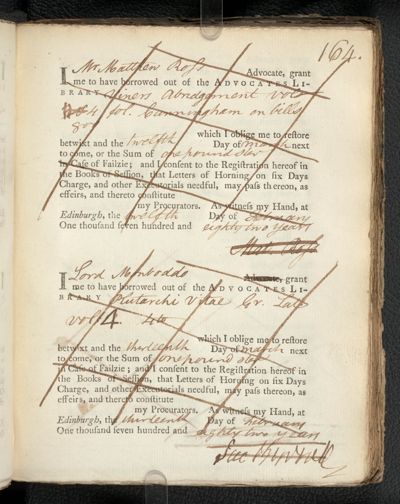 164.
I Mr. Matthew Ross Advocate, grant
me to have borrowed out of the ADVOCATES LI-
BRARY Viners Abridgement vol.
4 fol. Cunningham on bills
8vo
which I oblige me to restore
betwixt and the twelfth Day of march next
to come, or the Sum of one pound ster
in Case of Failzie; and I consent to the Registration hereof in
the Books of Session, that Letters of Horning on six Days
Charge, and other Executorials needful, may pass thereon, as
effeirs, and thereto constitute
my Procurators. As witness my Hand, at
Edinburgh, the twelfth Day of February
One thousand seven hundred and eighty two years
Matt. Ross
I Lord Monboddo Advocate, grant
me to have borrowed out of the ADVOCATES LI-
BRARY Plutarchi Vitae Gr. Lat.
vol 4 4to
which I oblige me to restore
betwixt and the thirteenth Day of march next
to come, or the Sum of one pound ster
in Case of Failzie; and I consent to the Registration hereof in
the Books of Session, that Letters of Horning on six Days
Charge, and other Executorials needful, may pass thereon, as
effeirs, and thereto constitute
my Procurators. As witness my Hand, at
Edinburgh, the thirteenth Day of February
One thousand seven hundred and eighty two years
Jas